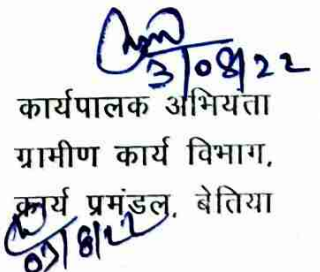 3/08/22
कार्यपालक अभियंता
ग्रामीण कार्य विभाग,
कार्य प्रमंडल, बेतिया
03/8/22